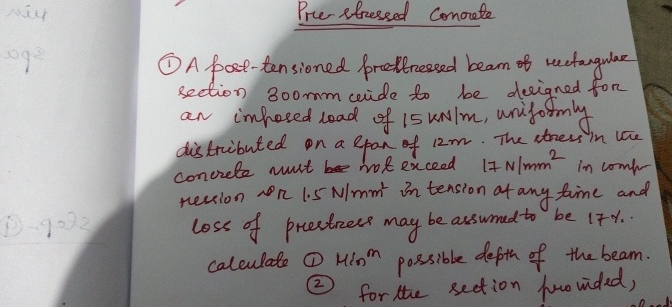 Pre-stressed Concrete
① A post-tensioned prestressed beam of rectangular
section 300mm wide to be designed for
an imposed load of 15 kN/m, uniformly
distributed on a span of 12m. The stress in the
concrete must be not exceed 17 N/mm² in comp
ression nor 1.5 N/mm² in tension at any time and
loss of prestress may be assumed to be 17%.
calculate ① Minm possible depth of the beam.
② for the section provided,